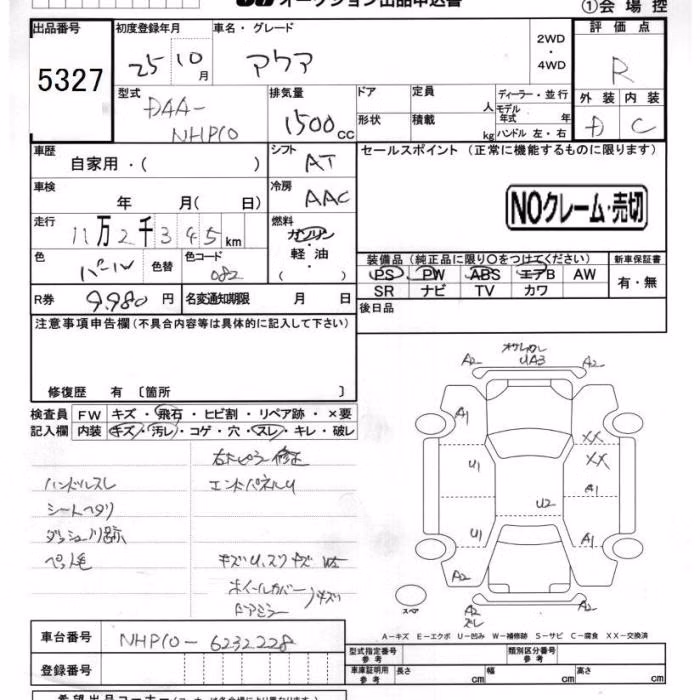 オークション出品申込書
①会場控
出品番号
5327
初度登録年月
25 10月
車名・グレード
アクア
2WD
・
4WD
評価点
R
型式
DAA-
NHP10
排気量
1500cc
ドア
定員
人
ディーラー・並行
モデル
年式 年
形状
積載
kg
ハンドル 左・右
外装
内装
D
C
車歴
自家用・( )
シフト
AT
セールスポイント (正常に機能するものに限ります)
車検
年 月( 日)
冷房
AAC
NOクレーム・売切
走行
11万2千345km
燃料
ガソリン
・
軽油
( )
色
パール
色替
色コード
082
装備品(純正品に限り○をつけてください)
PS PW ABS エアB AW
SR ナビ TV カワ
新車保証書
有・無
R券
9,980円
名変通知期限 月 日
後日品
注意事項申告欄(不具合内容等は具体的に記入して下さい)
修復歴 有 〔箇所 〕
検査員
記入欄
FW キズ・飛石・ヒビ割・リペア跡・×要
内装 キズ・汚レ・コゲ・穴・スレ・キレ・破レ
右Fピラー修正
ハンドルスレ
エンドパネルU
シートヘタリ
ペット毛
キズU,スリキズ
ホイールカバー
ドアミラー
キズ
A2
UA3
A2
A1
XX
XX
U1
A1
U2
U1
A1
A2
スペア
A2
スレ
A2
A−キズ E−エクボ U−凹み W−補修跡 S−サビ C−腐食 XX−交換済
車台番号
NHP10-6232228
登録番号
型式指定番号
参考
類別区分番号
参考
車庫証明用
参考
長さ cm
幅 cm
高さ cm
希望出品コーナー